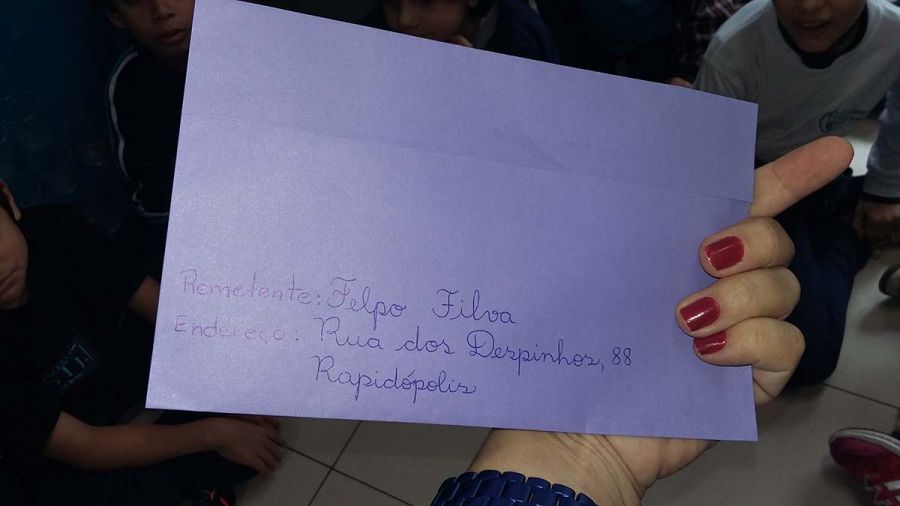 Remetente: Felpo Filva
Endereço: Rua dos Despinhos, 88
Rapidópolis